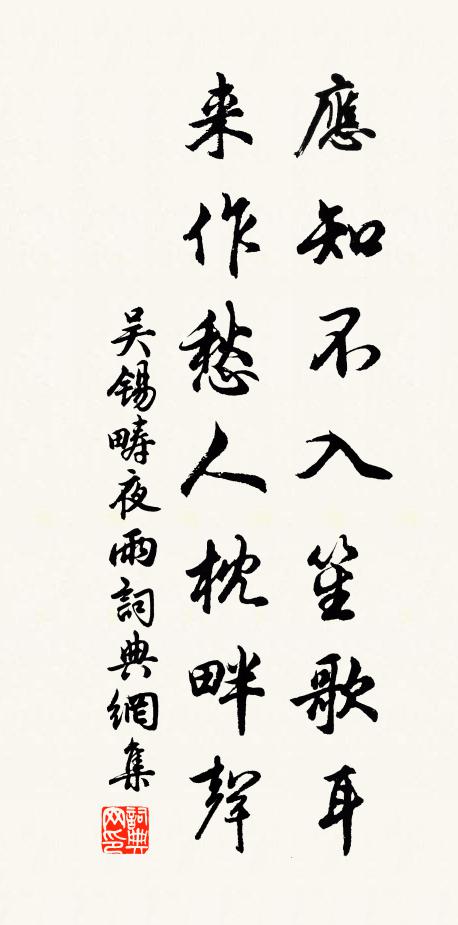 應知不入笙歌耳
来作愁人枕畔聲
吴锡疇夜雨詞典網集
詞典网印